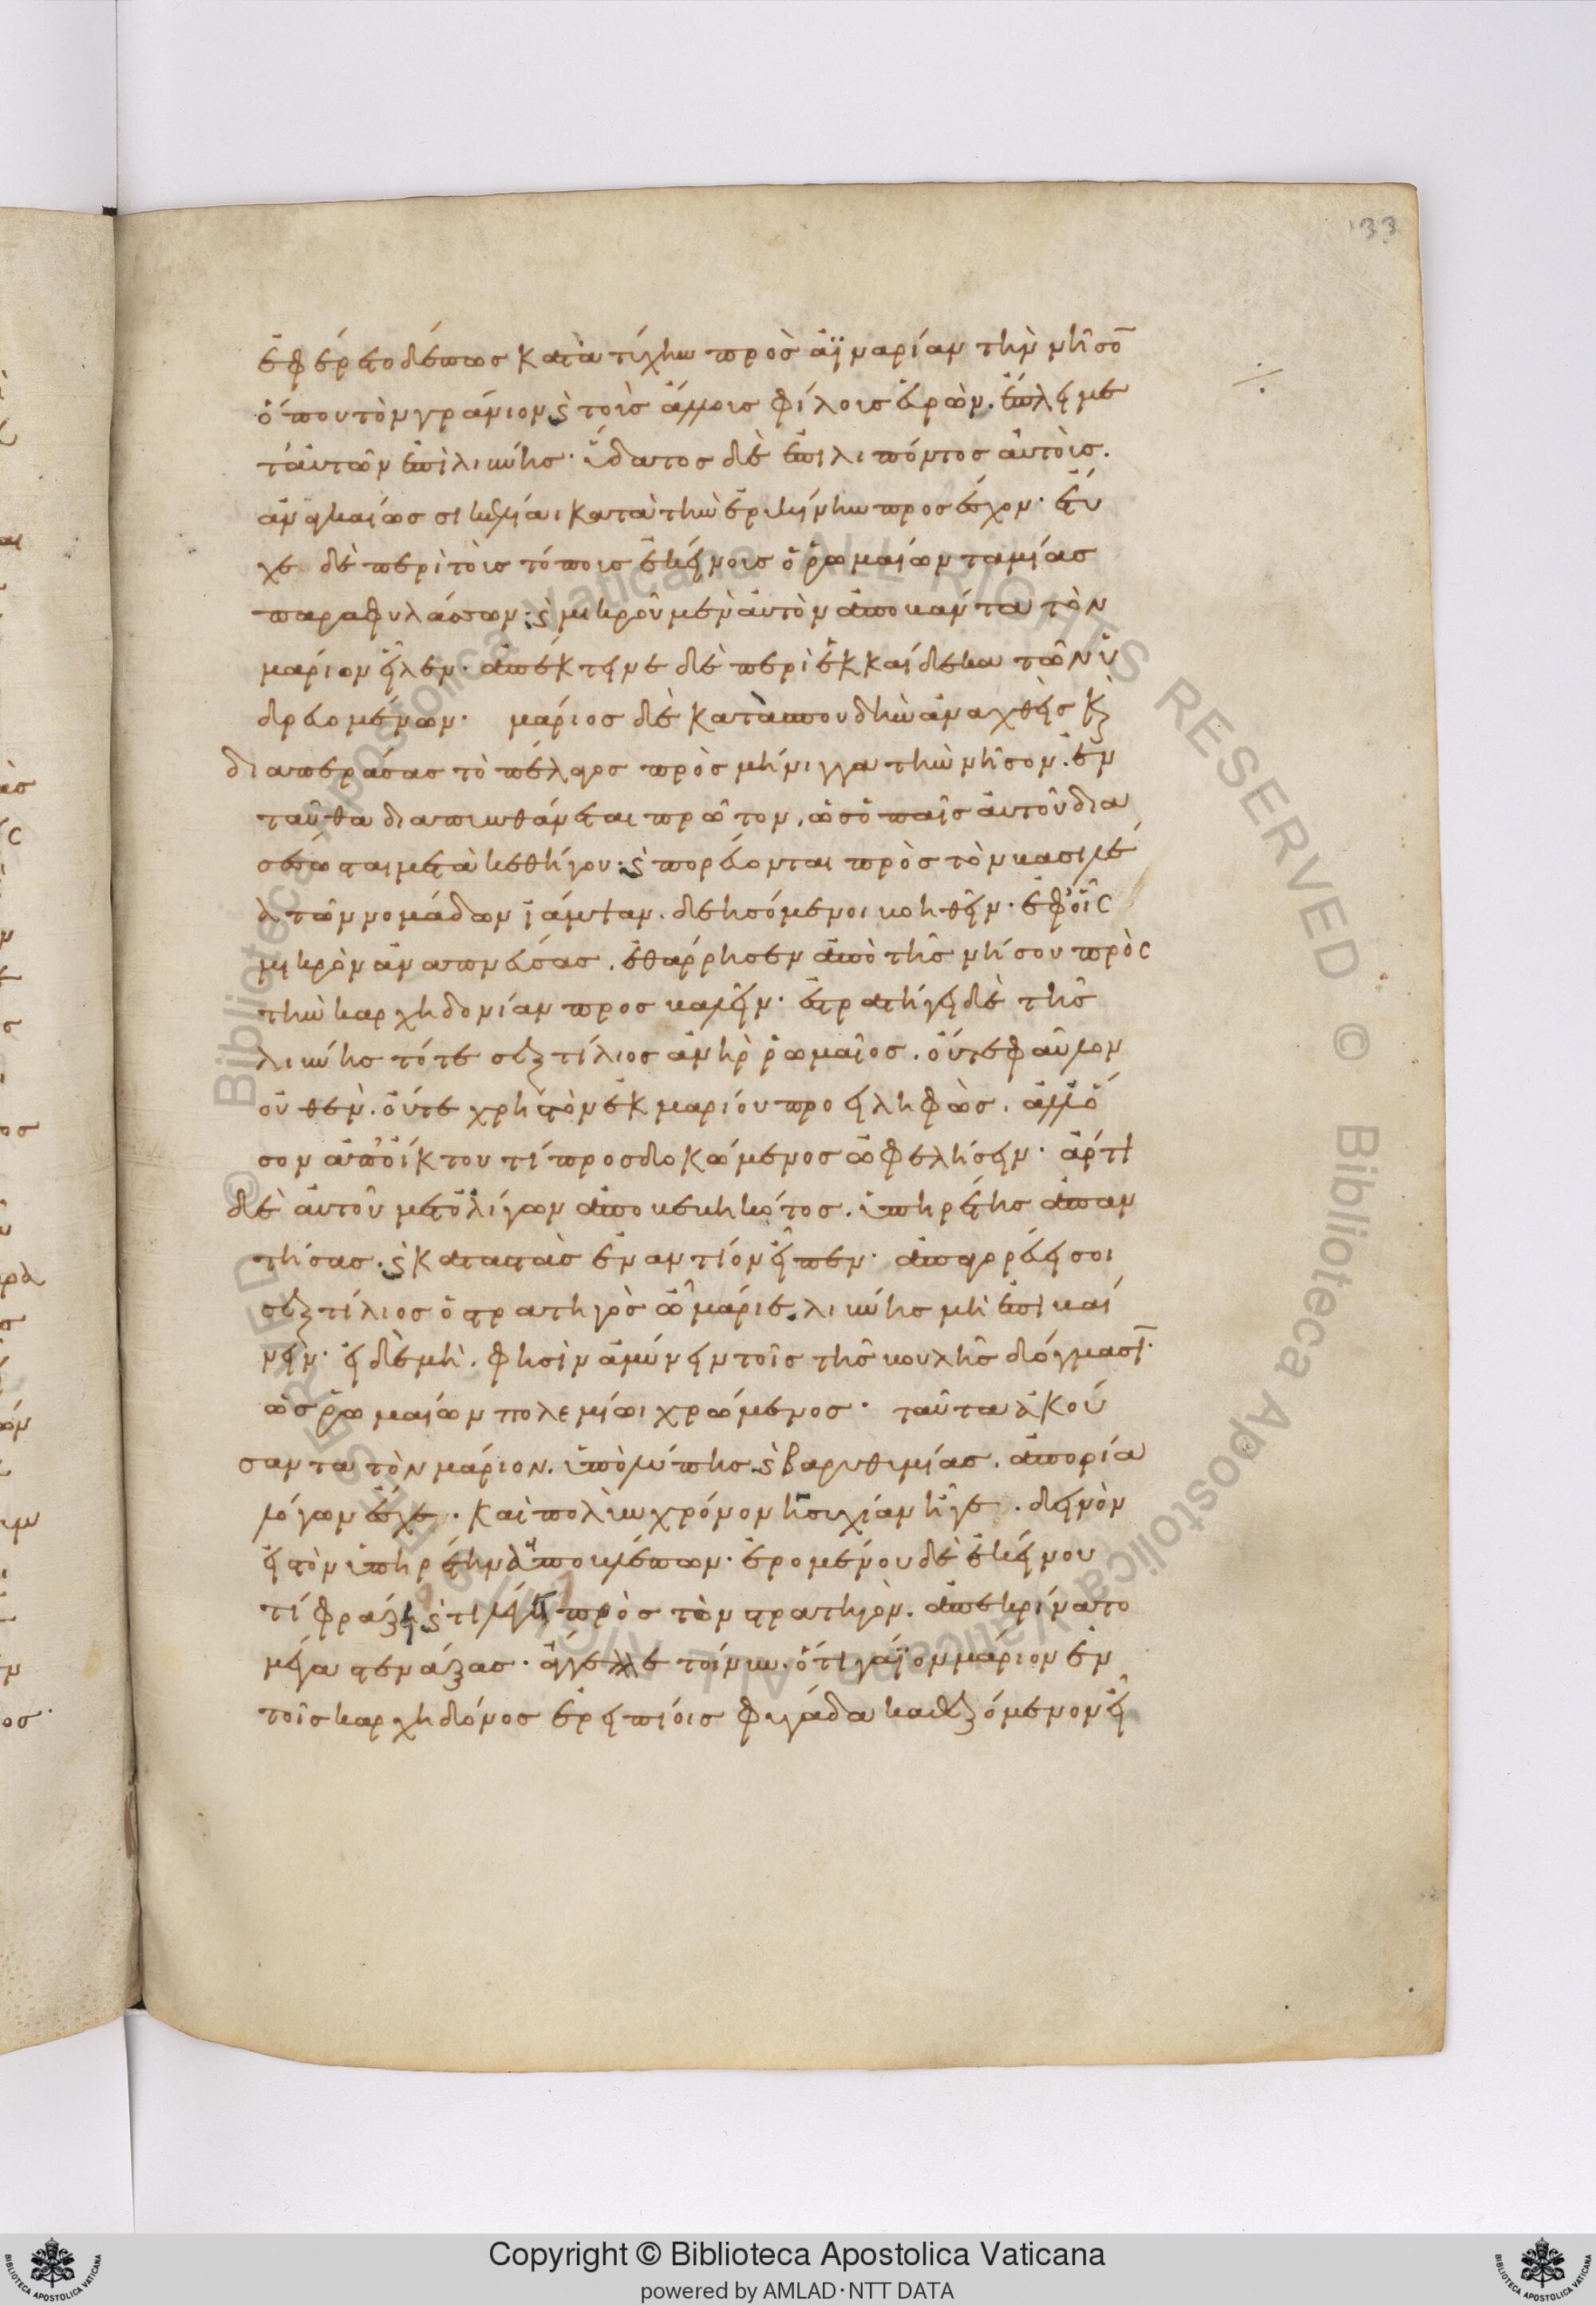 133
ἐφέρετο δέ πως κατὰ τύχην πρὸς ἀϊναρίαν τὴν νῆσο̅
ὅπου τὸν γράνιον ϗ τοὺς ἄλλους φίλους εὑρὼν. ἔπλει με
τ' αὐτῶν ἐπὶ λιβύης· ὕδατος δὲ ἐπιλιπόντος αὐτοὺς.
ἀναγκαίως σικελίαι κατὰ τὴν ἐρυκίνην προσέσχον· ἔτυ
χε δὲ περὶ τοὺς τόπους ἐκείνους ὁ ῥωμαίων ταμίας
παραφυλάσσων· ϗ μικροῦ μὲν αὐτὸν ἀποβάντα τὸν
μάριον εἷλεν· ἀπέκτεινε δὲ περὶ ἑκκαίδεκα τῶν ὑ
δρευομένων· μάριος δὲ κατὰ σπουδὴν ἀναχθεὶς κ
διαπεράσας τὸ πέλαγος πρὸς μήνιγγα τὴν νῆσον. ἐν
ταῦθα διαπυνθάνεται πρῶτον, ὡς ὁ παῖς αὐτοῦ δια
σέσωσται μετὰ κεθήγου· ϗ πορεύονται πρὸς τὸν βασιλέ
α τῶν νομάδων ἰάμψαν. δεησόμενοι βοηθεῖν· ἐφ' οἷς
μικρὸν ἀναπνεύσας. ἐθάρρησεν ἀπὸ τῆς νήσου πρὸς
τὴν καρχηδονίαν προσβαλεῖν· ἐστρατήγει δὲ τῆς
λιβύης τότε σεξτίλιος ἀνὴρ ῥωμαῖος. οὔτε φαῦλον
οὐθὲν. οὔτε χρηστὸν ἐκ μαρίου προειληφὼς. ἀλλ' ὅ
σον ἀπ' οἴκτου τί προσδοκώμενος ὠφελήσειν· ἄρτι
δὲ αὐτοῦ μετ' ὀλίγων ἀποβεβηκότος. ὑπηρέτης ἀπαν
τήσας. ϗ καταστὰς ἐναντίον εἶπεν· ἀπαγορεύει σοι
σεξτίλιος ὁ στρατηγὸς ὦ μάριε. λιβύης μὴ ἐπιβαί
νειν· εἰ δὲ μὴ. φησὶν ἀμύνειν τοῖς τῆς βουλῆς δόγμασι̅·
ὡς ῥωμαίων πολεμίωι χρώμενος· ταῦτα ἀκού
σαντα τὸν μάριον. ὑπὸ λύπης ϗ βαρυθυμίας. ἀπορία
λόγων ἔσχε· καὶ πολὺν χρόνον ἡσυχίαν ἦγε. δεινὸν
εἰς τὸν ὑπηρέτην ἀποβλέπων· ἐρομένου δὲ ἐκείνου
τί φράζει ϗ τί λέγει πρὸς τὸν στρατηγὸν. ἀπεκρίνατο
μέγα στενάξας· ἄγγελλε τοίνυν. ὅτι γάϊον μάριον ἐν
τοῖς καρχηδόνος ἐρειπίοις φυγάδα καθεζόμενον εἶ
© Biblioteca Apostolica Vaticana ALL RIGHTS RESERVED
Copyright © Biblioteca Apostolica Vaticana
powered by AMLAD·NTT DATA